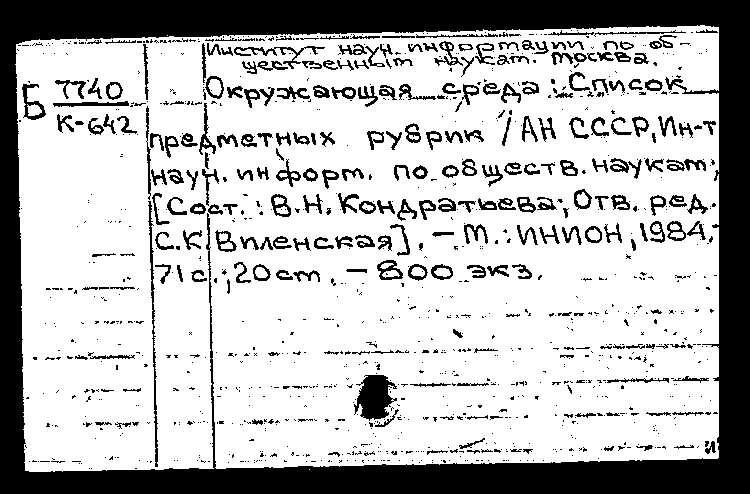 Институт науч. информации по об-
щественным наукам. Москва.
Б 7740
К-642
Окружающая среда: Список
предметных рубрик / АН СССР, Ин-т
науч. информ. по обществ. наукам;
[Сост.: В.Н. Кондратьева; Отв. ред.
С.К. Виленская]. – М.: ИНИОН, 1984. –
71 с.; 20 cm. – 800 экз.